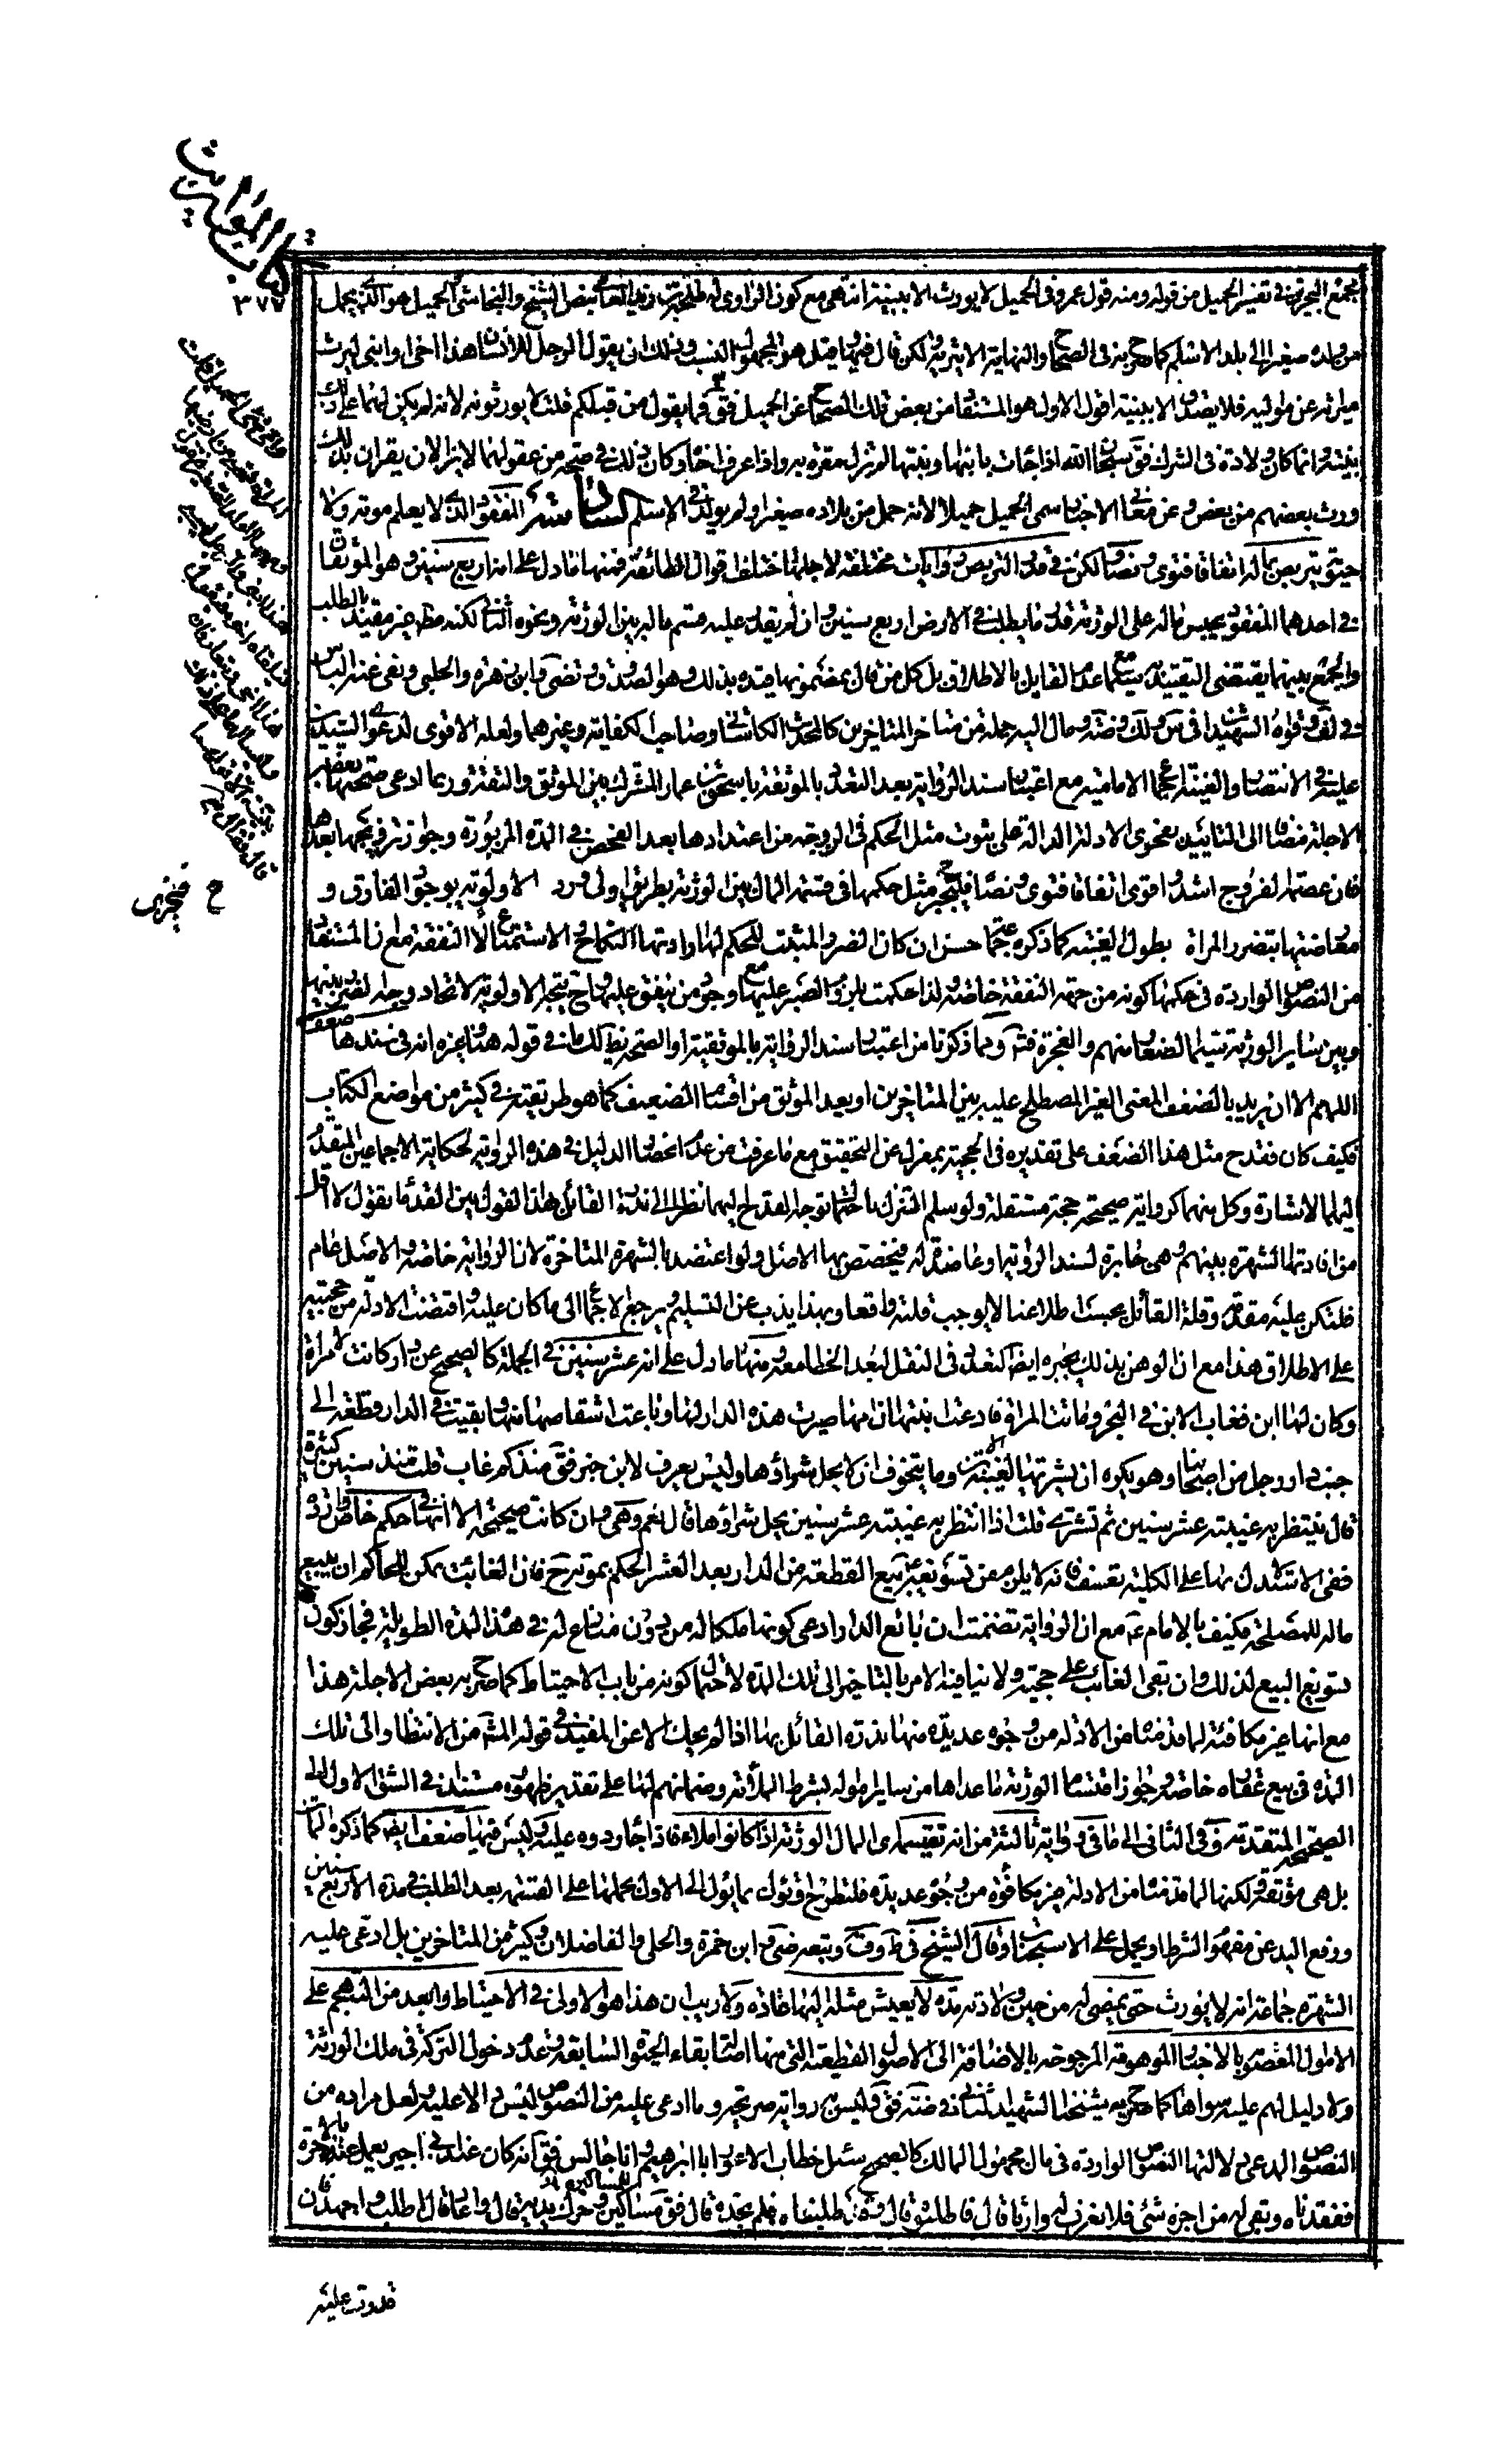 كتاب المواريث
٣٧٧
مجمع البحرين في تفسير الحميل من قوله ومنه قول عمرو في الحميل لا يورث الا ببينة انتهى مع كون الراوي له طلحة بن زيد العامي بنص الشيخ والنجاشي الحميل هو الذي يحمل
من بلده صغيرا الى بلد الاسلام كما صرح به في الصحاح والنهاية الاثيرية ولكن قال فيهما وقيل هو المجهول النسب وذلك ان يقول الرجل للانسان هذا اخي او ابني ليرث
ميراثه عن مواليه فلا يصدق الا ببينة اقول الاول هو المستفاد من بعض تلك الصحاح عن الحميل فق فما يقول من قبلكم قلت لا يورثونه لانه لم يكن لهما على ذلك
بينة وانما كان ولادة في الشرك فق سبحان الله اذا جاءت بابنها او بنتها لم تزل مقرة به واذا عرف اخاه وكان ذلك في صحة من عقولهما لا يزالان يقران بذلك
ورث بعضهم من بعض وعن معاني الاخبار سمي الحميل حميلا لانه حمل من بلاده صغيرا ولم يولد في الاسلام السادس المفقود الذي لا يعلم موته ولا
حيوته يتربص بماله اتفاقا فتوى ونصا لكن في قدر التربص روايات مختلفة لاجلها اختلف اقوال الطائفة فمنها ما دل على انه اربع سنين وهو الموثقان
في احدهما المفقود يحبس ماله على الورثة قدر ما يطلب في الارض اربع سنين وان لم يقدر عليه قسم ماله بين الورثة ونحوه الثاني لكنه مط غير مقيد بالطلب
والجمع بينهما يقتضي التقييد سيما مع عدم القايل بالاطلاق بل كل من قال بمضمونها قيده بذلك وهو الصدوق والمرتضى وابن زهرة والحلبي ونفى عنه الباس
في لف وقواه الشهيدان في س ولك وضة ومال اليه جملة من متاخر المتاخرين كالمحدث الكاشاني وصاحب الكفاية وغيرهما ولعله الاقوى لدعوى السيدين
عليه في الانتصار والغنية اجماع الامامية مع اعتبار سند الرواية بعد التعدد بالموثقة باسحق بن عمار المشترك بين الموثق والثقة وربما ادعى صحتها بعض
الاجلة مضافا الى التأييد بفحوى الادلة الدالة على ثبوت مثل الحكم في الزوجة من اعتدادها بعد الفحص في المدة المزبورة وجواز تزويجها بعدها
فان عصمة الفروج اشد واقوى اتفاقا فتوى ونصا فليجز مثل حكمها في قسمة المال بين الورثة بطريق اولى ورد الاولوية بوجود الفارق و
معارضتها بتضرر المراة بطول الغيبة كما ذكره جماعة حسن ان كان الضرر المثبت للحكم لها ارادتها النكاح والاستمتاع لا النفقة مع ان المستفاد
من النصوص الواردة في حكمها كونه من جهة النفقة خاصة ولذا حكمت بلزوم الصبر عليها مع وجود من ينفق عليها وح يتجه الاولوية لاتحاد وجه الضرر بينها
وبين ساير الورثة سيما الضعفاء منهم والعجزة فتم ومما ذكرنا من اعتبار سند الرواية بالموثقية او الصحة يظهر لك ما في قوله هنا وغيره انه في سندها ضعف
اللهم الا ان يريد بالضعف المعنى الغير المصطلح عليه بين المتاخرين او يعد الموثق من اقسام الضعيف كما هو طريقته في كثير من مواضع الكتاب
فكيف كان فقدح مثل هذا الضعف على تقديره في الحجية بمعزل عن التحقيق مع ما عرفت من عدم انحصار الدليل في هذه الرواية لحكاية الاجماعين المتقدم
اليهما الاشارة وكل منهما كرواية صحيحة حجة مستقلة ولو سلم التنزل باحتمال توجه القدح اليهما نظرا الى ندرة القائل بهذا القول بين القدماء نقول لا اقل
من افادتهما الشهرة بينهم وهي جابرة لسند الرواية او عاضدة له فيخصص بها الاصل ولو اعتضد بالشهرة المتاخرة لان الرواية خاصة والاصل عام
فلتكن عليه مقدمة وقلة القائل بحسب اطلاعنا لا يوجب قلته واقعا وبهذا يذب عن التسليم ويرجع الاجماع الى ما كان عليه واقتضت الادلة من حجيته
على الاطلاق هذا مع ان الوهن بذلك يجبره ايضا التعدد في النقل لبعد الخطا معه ومنها ما دل على انه عشر سنين في الجملة كالصحيح عن دار كانت لامراة
وكان لها ابن فغاب الابن في البحر وماتت المراة فادعت ابنتها ان امها صيرت هذه الدار لها وباعت اشقاصا منها وبقيت في الدار قطعة الى
جنب دار رجل من اصحابنا وهو يكره ان يشتريها لغيبة الابن وما يتخوف ان لا يحل شراؤها وليس يعرف للابن خبر فق منذ كم غاب قلت منذ سنين كثيرة
قال ينتظر به غيبته عشر سنين ثم تشترى قلت اذا انتظر به غيبته عشر سنين يحل شراؤها قال نعم وهي وان كانت صحيحة الا انها في حكم خاص وارد
ففي الاستدلال بها على الكلية تعسف فانه لا يلزم من تسويغه بيع القطعة من الدار بعد العشر الحكم بموته ح فان الغائب يمكن للحاكم ان يبيع
ماله للمصلحة فكيف بالامام ع مع ان الرواية تضمنت ان بائع الدار ادعى كونها ملكا له من دون منازع له في هذه المدة الطويلة فجاز كون
تسويغ البيع لذلك وان بقي الغائب على حجيته ولا ينافيه الامر بالتاخير الى تلك المدة لاحتمال كونه من باب الاحتياط كما صرح به بعض الاجلة هذا
مع انها غير مكافئة لما قدمناه من الادلة من وجوه عديدة منها ندرة القائل بها اذا لم يحك الا عن المفيد في قوله المتم من الانتظار الى تلك
المدة في بيع عقاره خاصة وجواز اقتسام الورثة ما عداها من ساير امواله بشرط الملائة وضمانهم لها على تقدير ظهوره مستندا في الشق الاول الى
الصحيحة المتقدمة وفي الثاني الى ما في رواية ثالثة من انه تقسم المال الورثة اذا كانوا ملاء فاذا جاء ردوه عليه وليس فيها ضعف ايضا كما ذكره الماتن
بل هي موثقة ولكنها لما قدمنا من الادلة غير مكافئة من وجوه عديدة فلتطرح او تئول بما يئول الى الاول بحملها على القسمة بعد الطلب في مدة الاربع سنين
ورفع اليد عن مفهوم الشرط او يحمل على الاستحباب وقال الشيخ في ط وف وتبعه ضي وابن حمزة والحلي والفاضلان وكثير من المتاخرين بل ادعى عليه
الشهرة جماعة انه لا يورث حتى يمضي له من حين ولادته مدة لا يعيش مثله اليها عادة ولا ريب ان هذا هو الاولى في الاحتياط وابعد من التهجم على
الاموال المعصومة بالاخبار الموهومة المرجوحة بالاضافة الى الاصول القطعية التي منها اصالة بقاء الحيوة السابقة وعدم دخول التركة في ملك الورثة
ولا دليل لهم عليه سواها كما صرح به شيخنا الشهيد الثاني في ضة فق وليس به رواية صريحة وما ادعي عليه من النصوص ليس دالا عليه ولعل مراده من
النصوص المدعى دلالتها النصوص الواردة في مال مجهول المالك كالصحيح سئل خطاب الاعور ابا ابراهيم ع وانا جالس فق انه كان عند ابي اجير يعمل عنده بالاجرة
ففقدناه وبقي له من اجره شئ فلا نعرف له وارثا قال فاطلبوه قال قد طلبناه فلم نجده قال فق مساكين وحرك يديه قال فاعاد قال اطلب واجهد فان
قدرت عليه